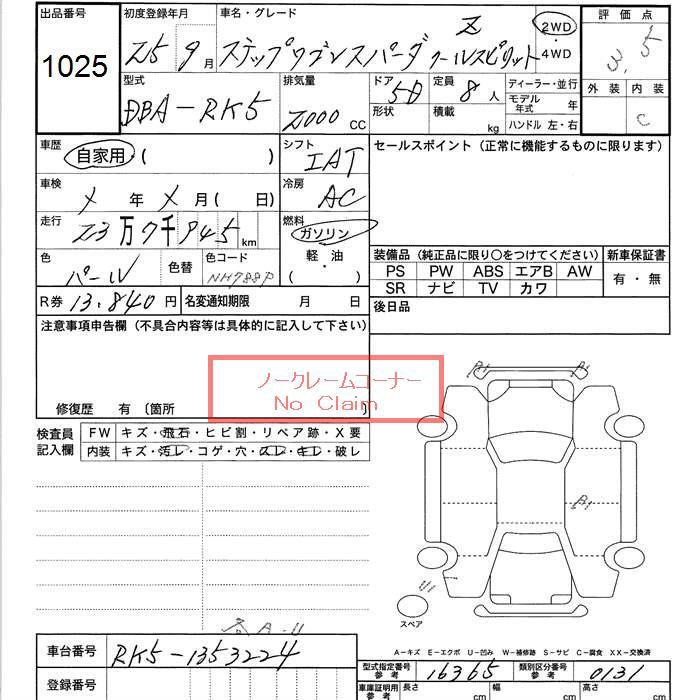 出品番号
1025
初度登録年月
25 9 月
車名・グレード
ステップワゴンスパーダ Z クールスピリット
2WD
・
4WD
評価点
3.5
外装 内装
C
型式
DBA-RK5
排気量
2000 CC
ドア 5D
形状
定員 8 人
積載 kg
ディーラー・並行
モデル年式 年
ハンドル 左・右
車歴
自家用・( )
シフト
IAT
セールスポイント(正常に機能するものに限ります)
車検
メ 年 メ 月( 日)
冷房
AC
走行
23万7千945 km
燃料
ガソリン
軽・油
( )
色
パール
色替
色コード
NH788P
装備品(純正品に限り○をつけてください)
PS PW ABS エアB AW
SR ナビ TV カワ
新車保証書
有・無
R券 13.840 円
名変通知期限 月 日
後日品
注意事項申告欄(不具合内容等は具体的に記入して下さい)
ノークレームコーナー
No Claim
修復歴 有 〔箇所 〕
検査員
記入欄
FW キズ・飛石・ヒビ割・リペア跡・X要
内装 キズ・汚レ・コゲ・穴・スレ・キレ・破レ
A1
A1
A1
U1
スペア
A-U
A-キズ E-エクボ U-凹み W-補修跡 S-サビ C-腐食 XX-交換済
車台番号
RK5-1353224
型式指定番号
参考
16365
類別区分番号
参考
0131
登録番号
車庫証明用
参考
長さ cm
幅 cm
高さ cm